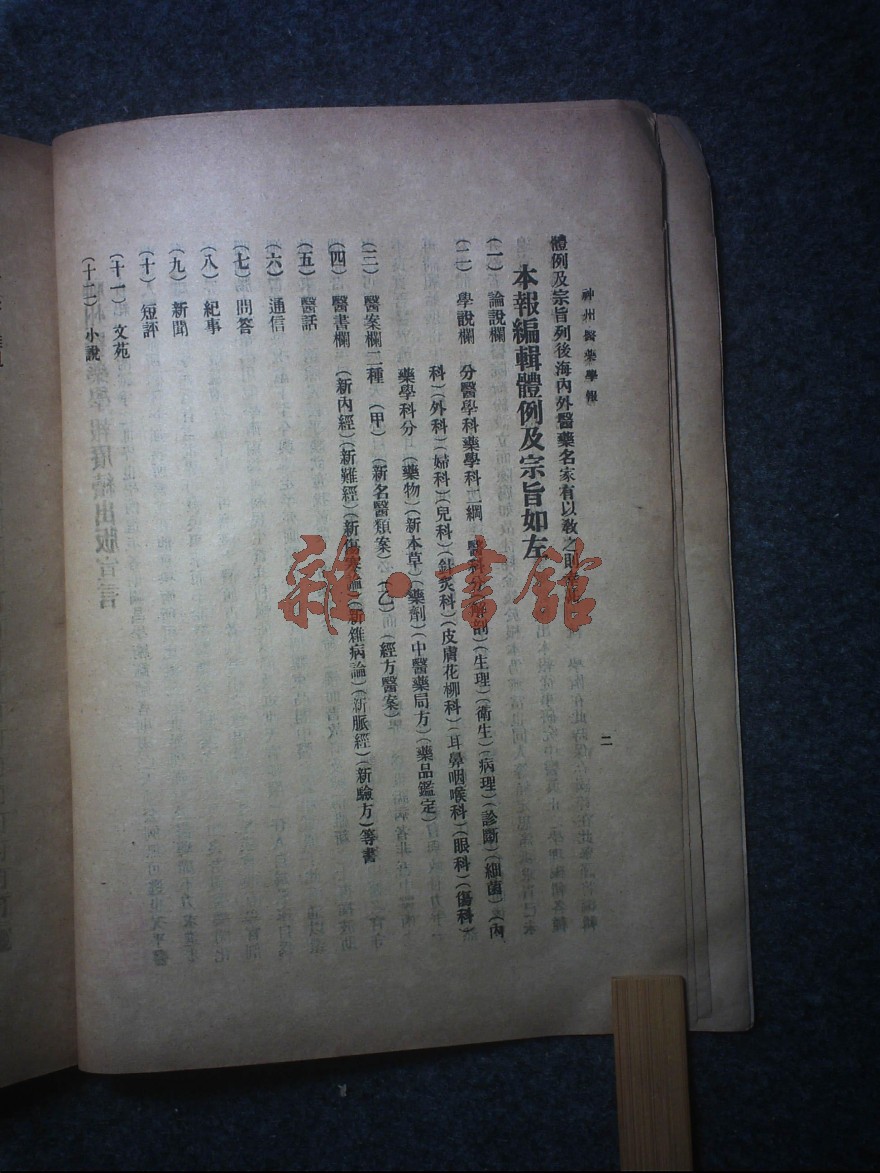 神州醫藥學報
二
體例及宗旨列後海內外醫藥名家有以敎之則幸甚
本報編輯體例及宗旨如左
(一) 論說欄
(二) 學說欄 分醫學科藥學科二綱 醫科分(解剖)(生理)(衛生)(病理)(診斷)(細菌)(內
科)(外科)(婦科)(兒科)(針灸科)(皮膚花柳科)(耳鼻咽喉科)(眼科)(傷科)
藥學科分 (藥物)(新本草)(藥劑)(中醫藥局方)(藥品鑑定)
(三) 醫案欄二種 (甲) (新名醫類案) (乙) (經方醫案)
(四) 醫書欄 (新內經)(新難經)(新傷寒論)(新雜病論)(新脈經)(新驗方)等書
(五) 醫話
(六) 通信
(七) 問答
(八) 紀事
(九) 新聞
(十) 短評
(十一) 文苑
(十二) 小說
雜·書館